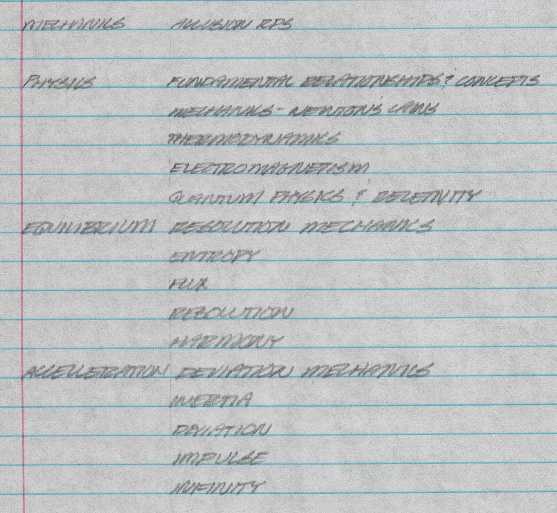 MECHANICS ALLUSION RPS
PHYSICS FUNDAMENTAL RELATIONSHIPS & CONCEPTS
MECHANICS - NEWTON'S LAWS
THERMODYNAMICS
ELECTROMAGNETISM
QUANTUM PHYSICS & RELETIVITY
EQUILIBRIUM RESOLUTION MECHANICS
ENTROPY
FLUX
RESOLUTION
HARMONY
ACCELLERATION DEVIATION MECHANICS
INERTIA
DEVIATION
IMPULSE
INFINITY